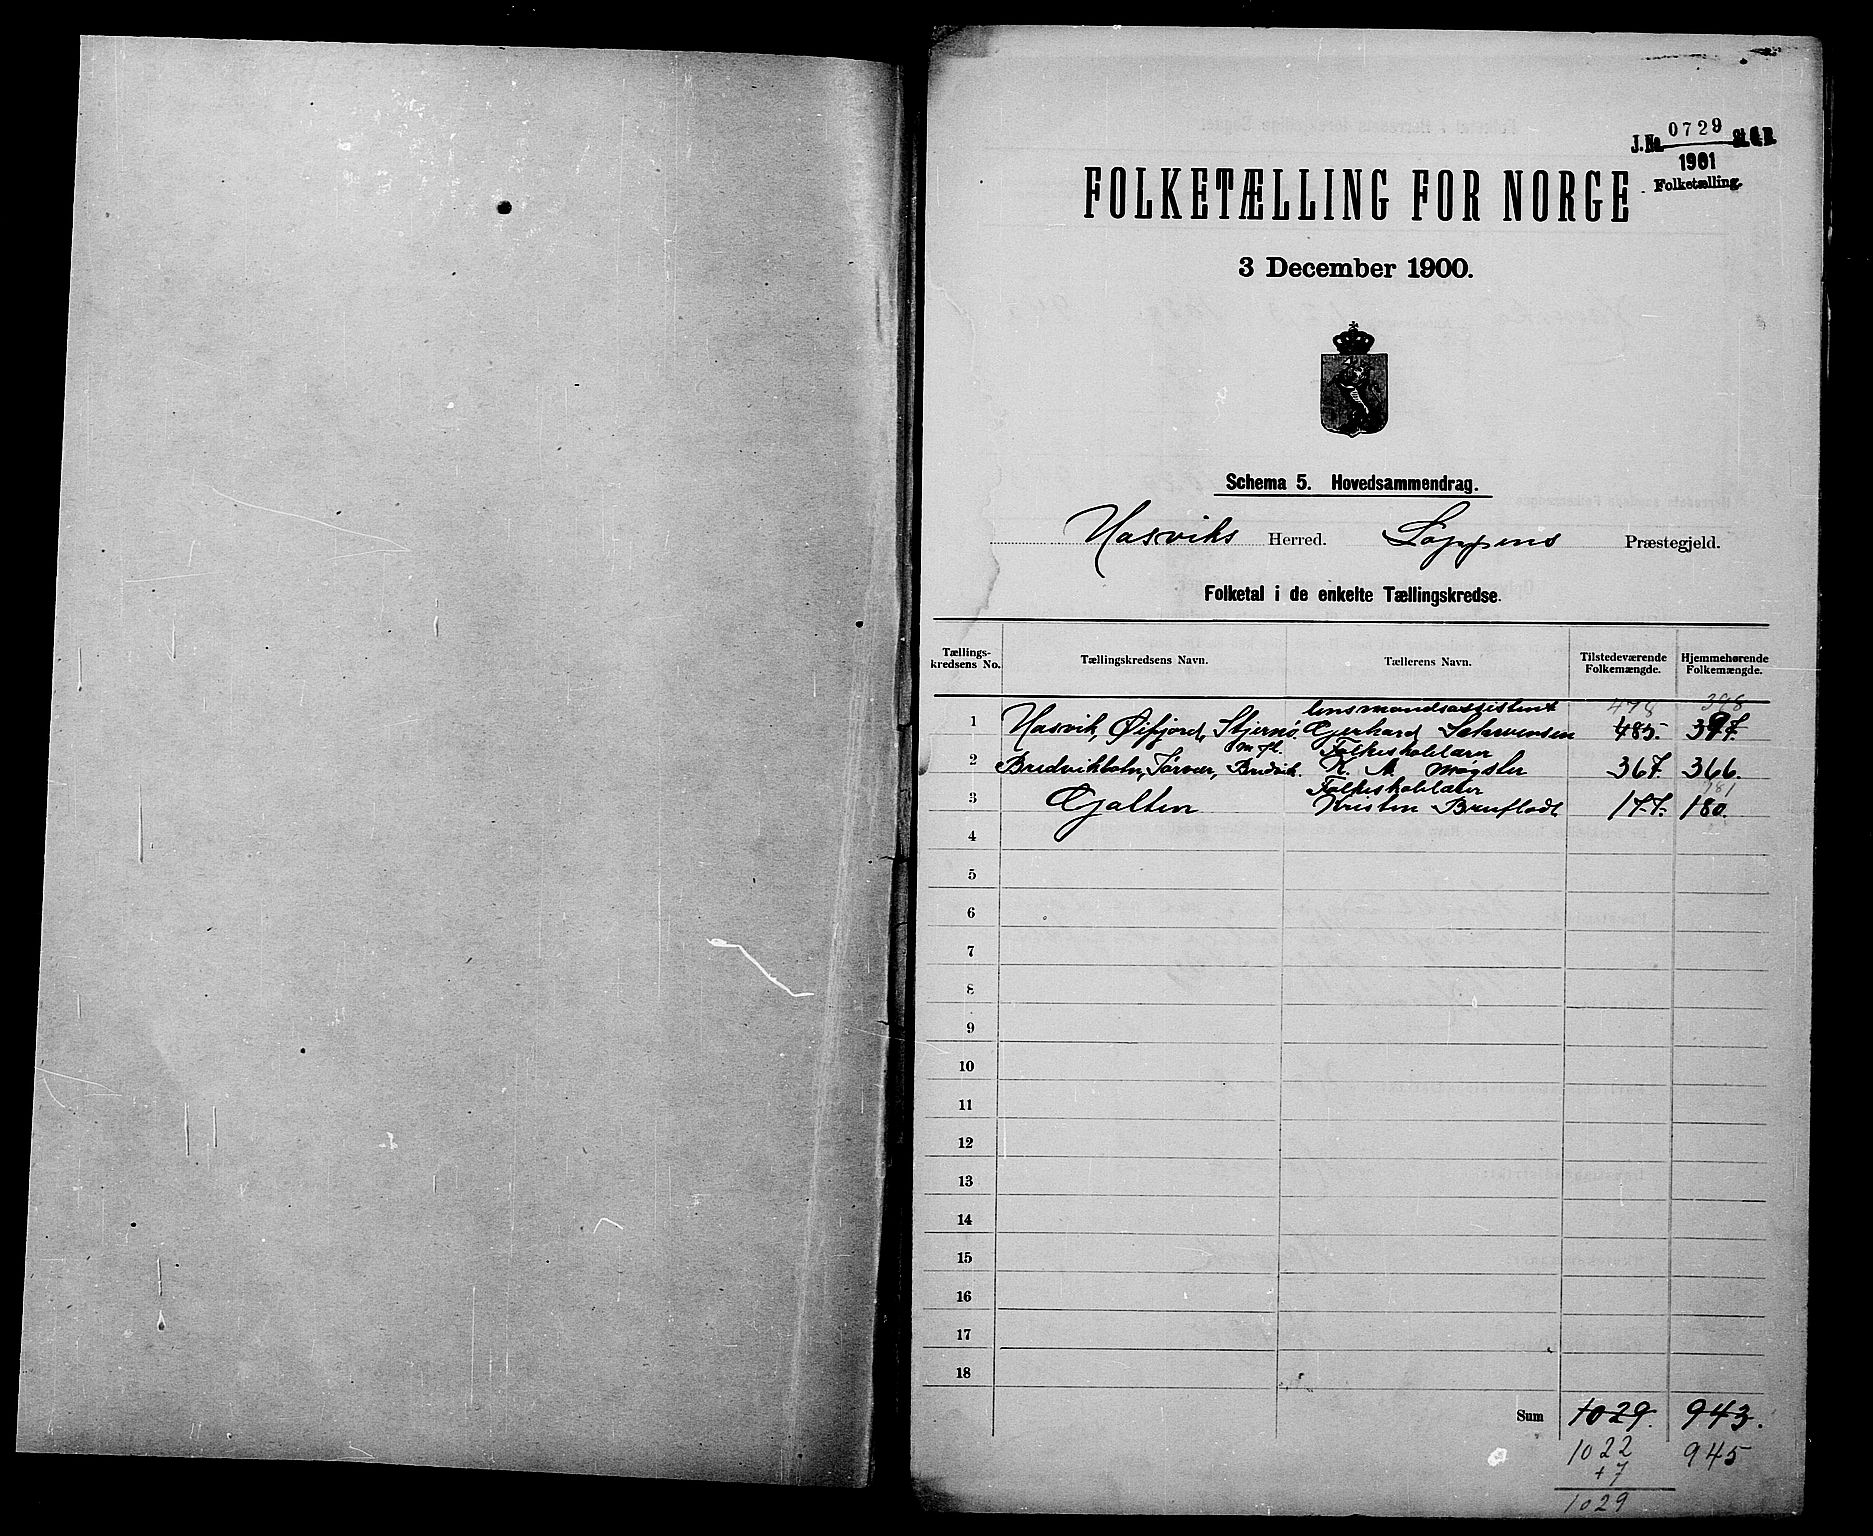 J.No. 0729 St.C.B.
1901
Folketælling.
FOLKETÆLLING FOR NORGE
3 December 1900.
Schema 5. Hovedsammendrag.
Hasviks Herred. Loppens Præstegjeld.
Folketal i de enkelte Tællingskredse.
Tællings-kredsens No. Tællingskredsens Navn. Tællerens Navn. Tilstedeværende Folkemængde. Hjemmehørende Folkemængde.
lensmandsassistent 478 398
1 Hasvik, Øifjord, Stjernø, m. fl. Gjerhard 485. 397.
Folkeskolelærer
2 Bredvikbotn, Sørvær, Bredvik. K. M. Møgster 367. 366.
Folkeskolelærer 181
3 Gjalten Kristen Brufladt 177. 180.
4
5
6
7
8
9
10
11
12
13
14
15
16
17
18
Sum 1029. 943.
1022 945
+7
1029